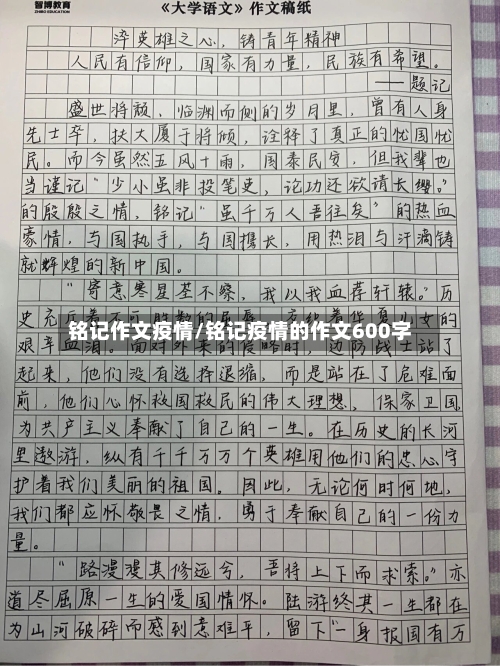 智博教育
ZHIBO EDUCATION
《大学语文》作文稿纸
淬英雄之心，铸青年精神
人民有信仰，国家有力量，民族有希望。
——题记
盛世将颓，临渊而侧的岁月里，曾有人身
先士卒，扶大厦于将倾，诠释了真正的忧国忧
民。而今虽然五风十雨，国泰民安，但我辈也
当谨记“少小虽非投笔吏，论功还欲请长缨。”
的殷殷之情，铭记“虽千万人吾往矣”的热血
豪情，与国执手，与国携长，用热泪与汗滴铸
就辉煌的新中国。
“寄意寒星荃不察，我以我血荐轩辕。”历
史充
女的
铭记作文疫情/铭记疫情的作文600字
艰辛血泪。面对外来的侵略时，边防战士站了
起来，他们没有选择退缩，而是站在了危难面
前，他们心怀救国救民的伟大理想，保家卫国，
为共产主义奉献了自己的一生。在历史的长河
里遨游，纵有千千万万个英雄用他们的忠心守
护着我们美丽的祖国。因此，无论何时何地，
我们都应怀敬畏之情，勇于奉献自己的一份力
量。
“路漫漫其修远兮，吾将上下而求索。”亦
道尽屈原一生的爱国情怀。陆游终其一生都在
为山河破碎而感到意难平，留下“一身报国有万